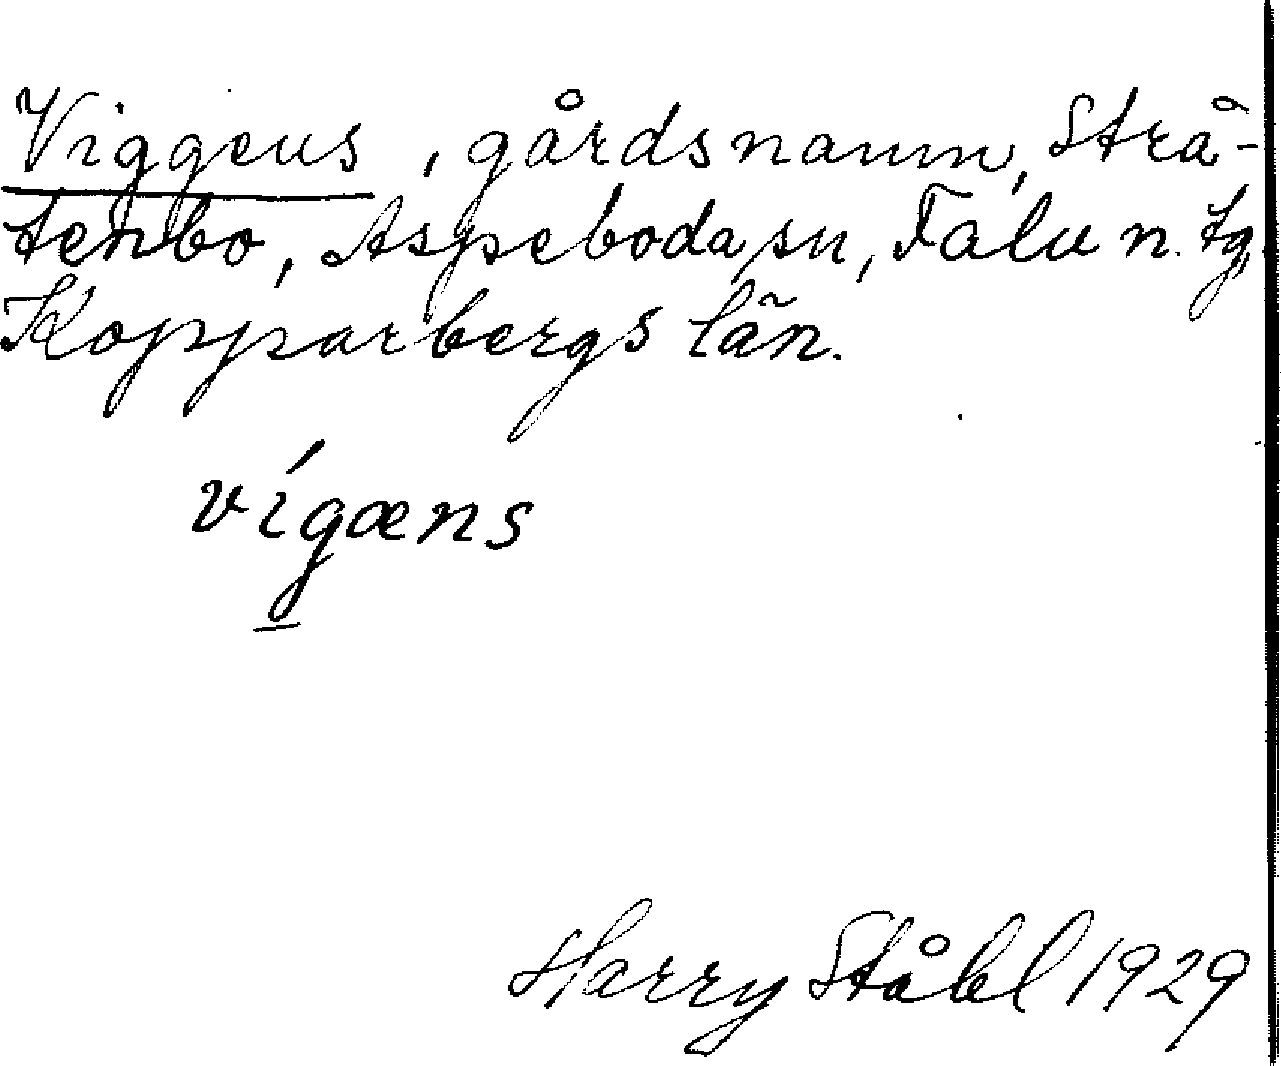 Viggens, gårdsnamn, Strå-
tenbo, Aspeboda sn, Falu n. tg,
Kopparbergs län.
vígæns
Harry Ståhl 1929